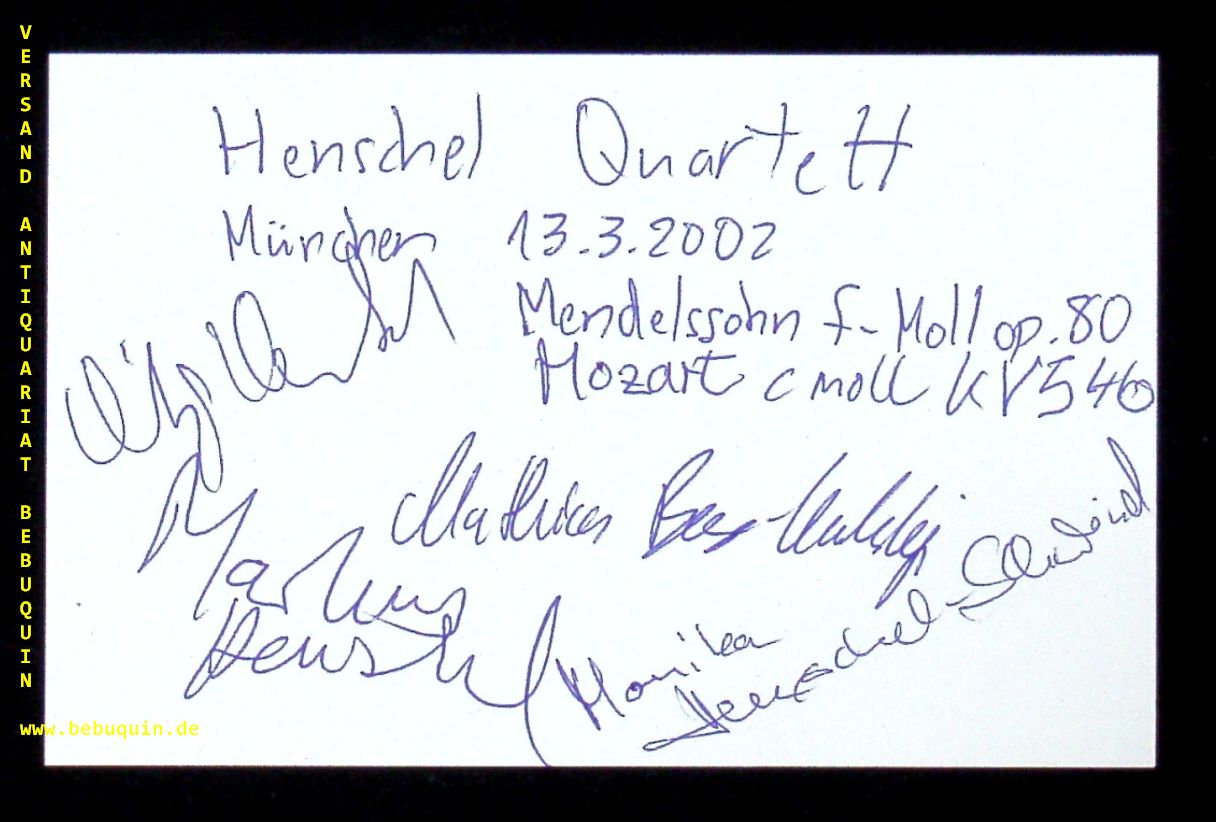 VERSAND ANTIQUARIAT BEBUQUIN
Henschel Quartett
München 13.3.2002
Mendelssohn f-Moll op. 80
Mozart c moll KV 546
Mathias
Markus
Henschel
Monika
Henschel-Schwind
www.bebuquin.de